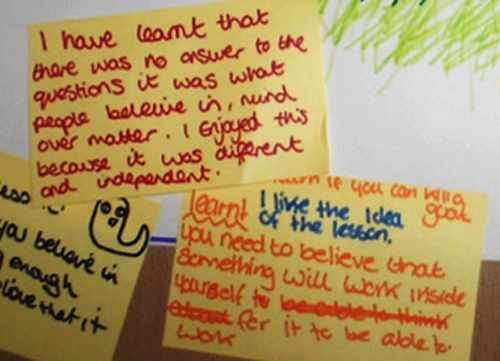 I have learnt that
there was no answer to the
questions it was what
people beleive in, mind
over matter. I Enjoyed this
because it was different
and independent.
if you can kill a
goat
learnt I like the Idea
of the lesson.
You need to believe that
Something will work inside
yourself to be able to think
about for it to be able to
work
ess
you believe in
enough
love that it